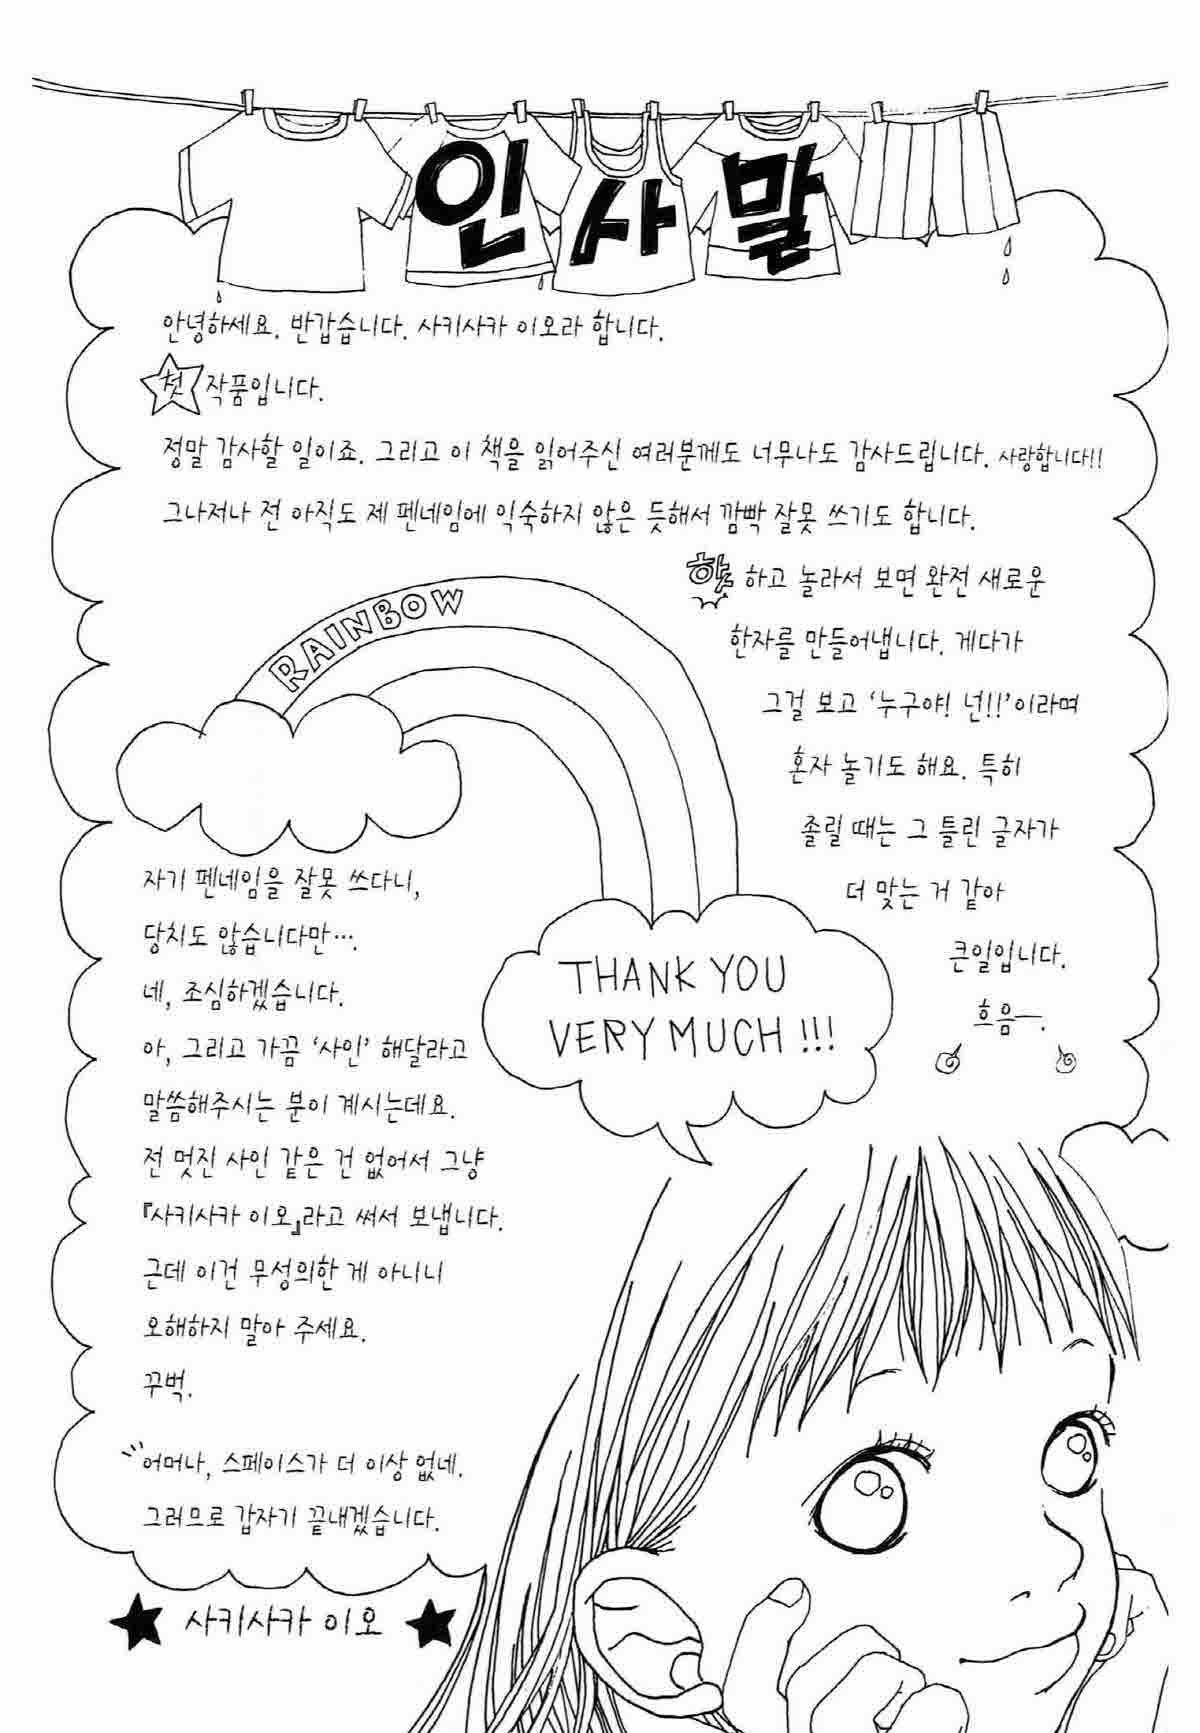 인사말
안녕하세요. 반갑습니다. 사키사카 이오라 합니다.
첫 작품입니다.
정말 감사할 일이죠. 그리고 이 책을 읽어주신 여러분께도 너무나도 감사드립니다. 사랑합니다!!
그나저나 전 아직도 제 펜네임에 익숙하지 않은 듯해서 깜빡 잘못 쓰기도 합니다.
핫 하고 놀라서 보면 완전 새로운
한자를 만들어냅니다. 게다가
그걸 보고 '누구야! 넌!!'이라며
혼자 놀기도 해요. 특히
졸릴 때는 그 틀린 글자가
더 맞는 거 같아
큰일입니다.
흐음―.
RAINBOW
자기 펜네임을 잘못 쓰다니,
당치도 않습니다만….
네, 조심하겠습니다.
아, 그리고 가끔 '사인' 해달라고
말씀해주시는 분이 계시는데요.
전 멋진 사인 같은 건 없어서 그냥
『사키사카 이오』라고 써서 보냅니다.
근데 이건 무성의한 게 아니니
오해하지 말아 주세요.
꾸벅.
어머나, 스페이스가 더 이상 없네.
그러므로 갑자기 끝내겠습니다.
THANK YOU
VERY MUCH!!!
★ 사키사카 이오 ★